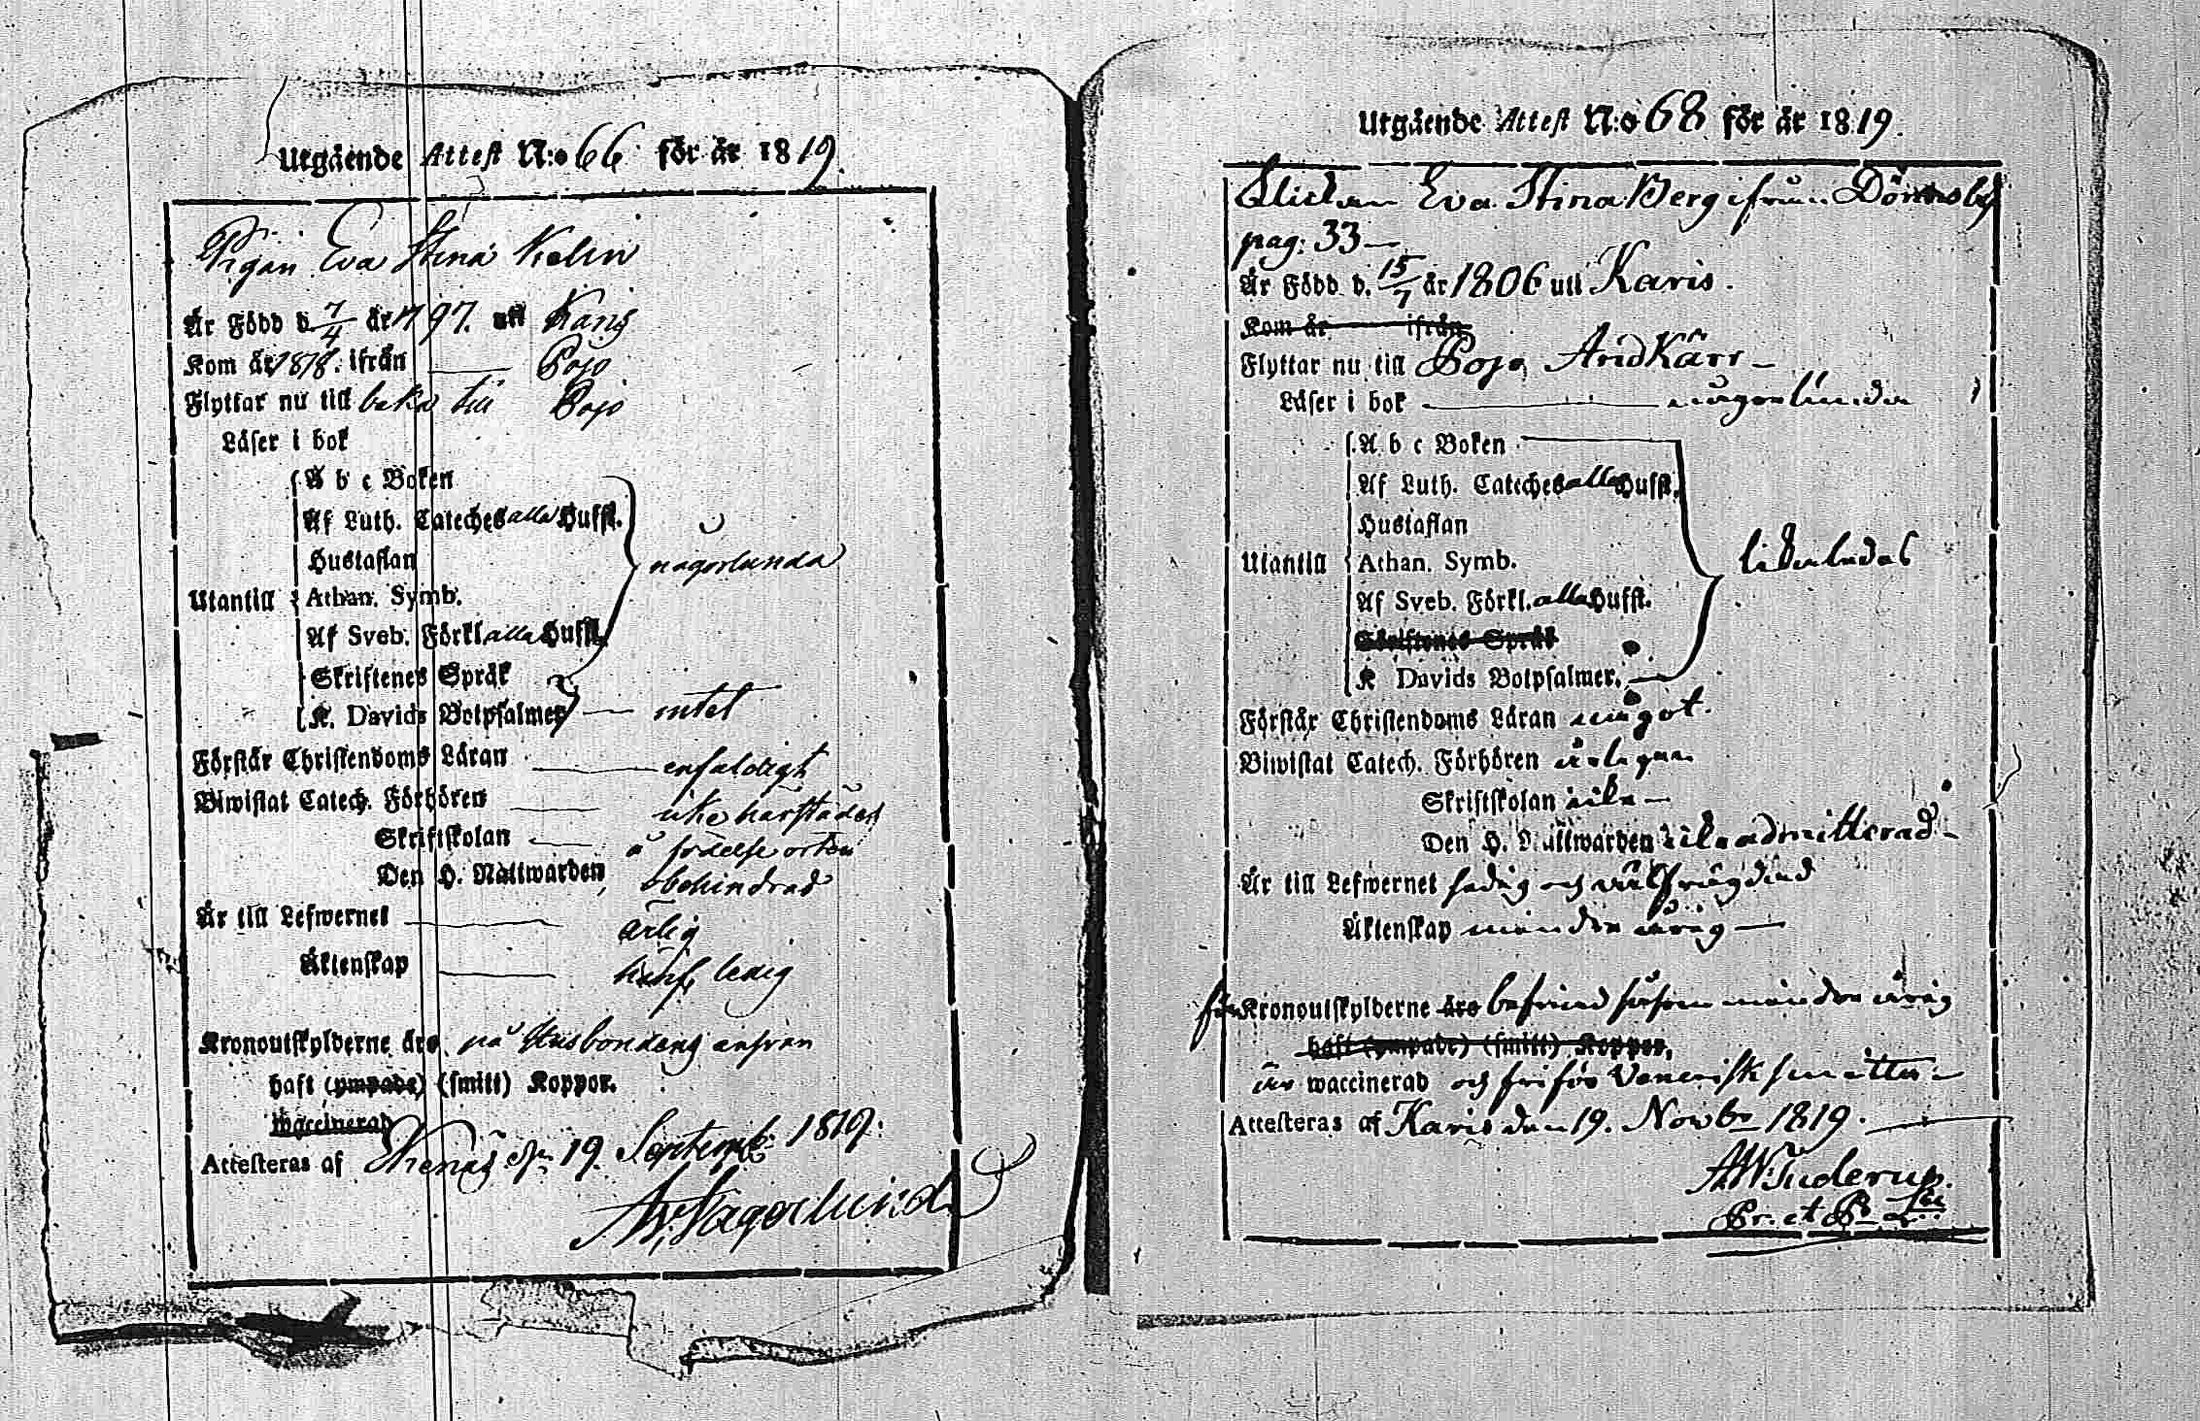 Utgående Attest N:o 66 för år 1819.
Pigan Eva Stina
Är Född d. 7/4 år 1797. uti Karis
Kom år 1818. ifrån Pojo
Flyttar nu till baka till Pojo
Läser i bok
A b c Boken
Af Luth. Cateches alla Hufst.
Hustaflan
Utantill Athan. Symb. någorlunda
Af Sveb. Förkl. alla Hufst.
Skriftenes Språk
K. Davids Botpsalmer intet
Förstår Christendoms Läran enfaldigt
Biwistat Catech. Förhören icke härstädes
Skriftskolan å födelse orten
Den H. Nattwarden obehindrad
Är till Lefwernet ärlig
Äktenskap ledig
Kronoutskylderne äro på Husbondens ansvar
haft (ympade) (smitt) Koppor.
waccinerad
Attesteras af Ekenäs d. 19. Septemb. 1819.
Utgående Attest N:o 68 för år 1819.
Flickan Eva Stina Berg ifrån Dönsby
pag: 33
Är Född d. 15/7 år 1806 uti Karis.
Kom år ifrån
Flyttar nu till Pojo, Andkärr
Läser i bok någorlunda
A b c Boken
Af Luth. Cateches alla Hufst.
Hustaflan
Utantill Athan. Symb. likaledes
Af Sveb. Förkl. alla Hufst.
Skriftenes Språk
K Davids Botpsalmer.
Förstår Christendoms Läran något.
Biwistat Catech. Förhören årligen
Skriftskolan icke
Den H. Nattwarden icke admitterad
Är till Lefwernet sedig och välfrägdad
Äktenskap minderårig
för Kronoutskylderne äro befriad såsom minderårig
haft (ympade) (smitt) Koppor,
är waccinerad och fri för Venerisk smitta
Attesteras af Karis den 19. Novbr 1819.